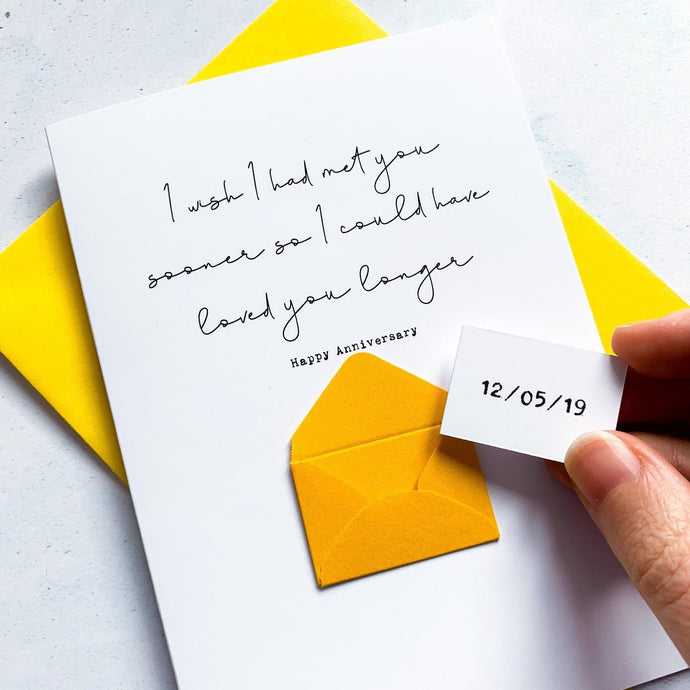 I wish I had met you
sooner so I could have
loved you longer
Happy Anniversary
12/05/19